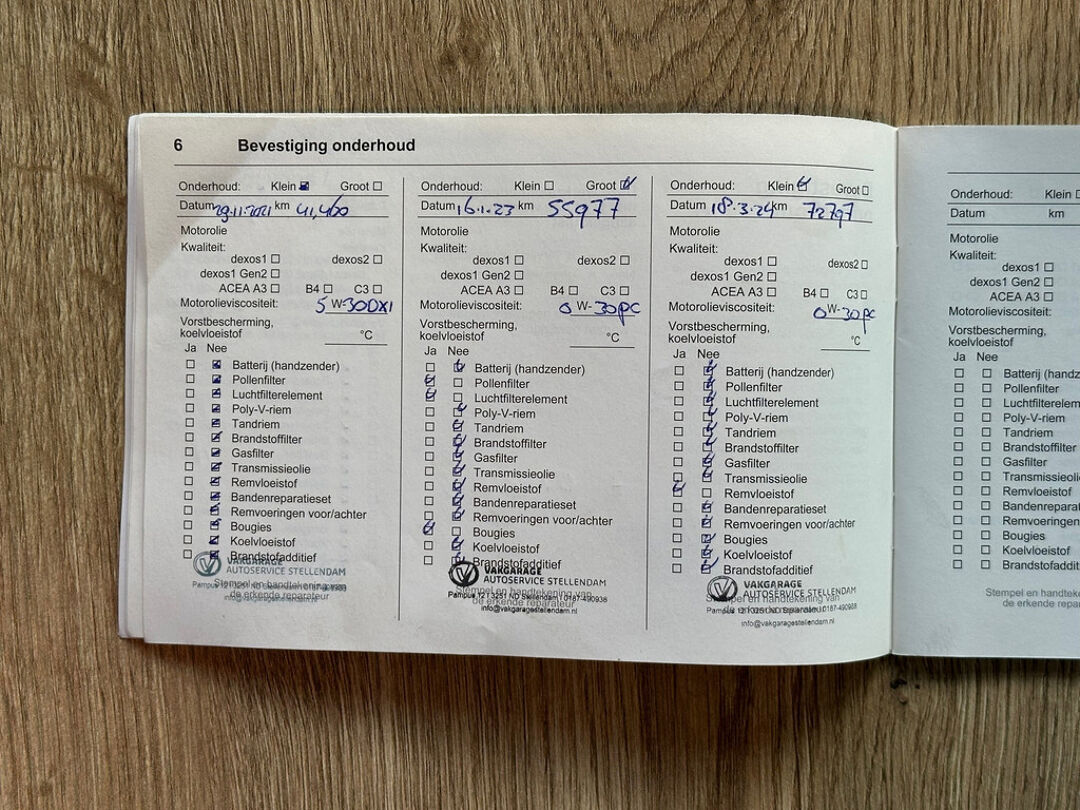 6 Bevestiging onderhoud
Onderhoud: Klein Groot
Datum 29.11.2021 km 41,460
Motorolie
Kwaliteit:
dexos1 dexos2
dexos1 Gen2
ACEA A3 B4 C3
Motorolieviscositeit: 5 W-30DX1
Vorstbescherming,
koelvloeistof °C
Ja Nee
Batterij (handzender)
Pollenfilter
Luchtfilterelement
Poly-V-riem
Tandriem
Brandstoffilter
Gasfilter
Transmissieolie
Remvloeistof
Bandenreparatieset
Remvoeringen voor/achter
Bougies
Koelvloeistof
Brandstofadditief
VAKGARAGE
AUTOSERVICE STELLENDAM
Stempel en handtekening van
de erkende reparateur
Onderhoud: Klein Groot
Datum 16.1.23 km 55977
Motorolie
Kwaliteit:
dexos1 dexos2
dexos1 Gen2
ACEA A3 B4 C3
Motorolieviscositeit: 0 W-30PC
Vorstbescherming,
koelvloeistof °C
Ja Nee
Batterij (handzender)
Pollenfilter
Luchtfilterelement
Poly-V-riem
Tandriem
Brandstoffilter
Gasfilter
Transmissieolie
Remvloeistof
Bandenreparatieset
Remvoeringen voor/achter
Bougies
Koelvloeistof
Brandstofadditief
VAKGARAGE
AUTOSERVICE STELLENDAM
Stempel en handtekening van
Pampus 12 | 3251 ND Stellendam | 0187-490938
de erkende reparateur
info@vakgaragestellendam.nl
Onderhoud: Klein Groot
Datum 18.3.24 km 72797
Motorolie
Kwaliteit:
dexos1 dexos2
dexos1 Gen2
ACEA A3 B4 C3
Motorolieviscositeit: 0 W-30PC
Vorstbescherming,
koelvloeistof °C
Ja Nee
Batterij (handzender)
Pollenfilter
Luchtfilterelement
Poly-V-riem
Tandriem
Brandstoffilter
Gasfilter
Transmissieolie
Remvloeistof
Bandenreparatieset
Remvoeringen voor/achter
Bougies
Koelvloeistof
Brandstofadditief
VAKGARAGE
AUTOSERVICE STELLENDAM
Stempel en handtekening van
Pampus 12 | 3251 ND Stellendam | 0187-490938
de erkende reparateur
info@vakgaragestellendam.nl
Onderhoud: Klein
Datum km
Motorolie
Kwaliteit:
dexos1
dexos1 Gen2
ACEA A3
Motorolieviscositeit:
Vorstbescherming,
koelvloeistof
Ja Nee
Batterij (handz
Pollenfilter
Luchtfilterelem
Poly-V-riem
Tandriem
Brandstoffilter
Gasfilter
Transmissieoli
Remvloeistof
Bandenreparat
Remvoeringen
Bougies
Koelvloeistof
Brandstofaddit
Stempel en handteke
de erkende repara